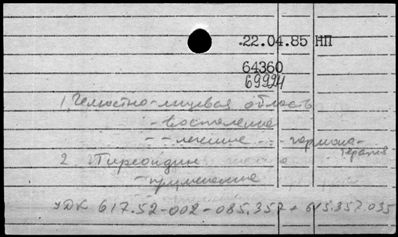 22.04.85 НП
64360
69994
1. Челюстно-лицевая область
- воспаление
- - лечение ... гормона-
терапия
2. Тиреоидин
- применение
УДК 617.52-002-085.357 + 615.357.035